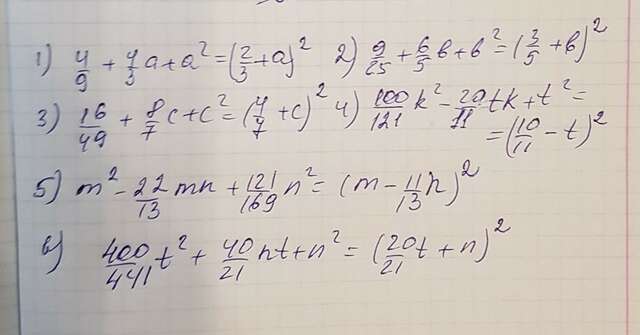 1) 4/9 + 4/3 a + a² = (2/3 + a)² 2) 9/25 + 6/5 b + b² = (3/5 + b)²
3) 16/49 + 8/7 c + c² = (4/7 + c)² 4) 100/121 k² - 20/11 tk + t² =
= (10/11 - t)²
5) m² - 22/13 mn + 121/169 n² = (m - 11/13 n)²
6) 400/441 t² + 40/21 nt + n² = (20/21 t + n)²